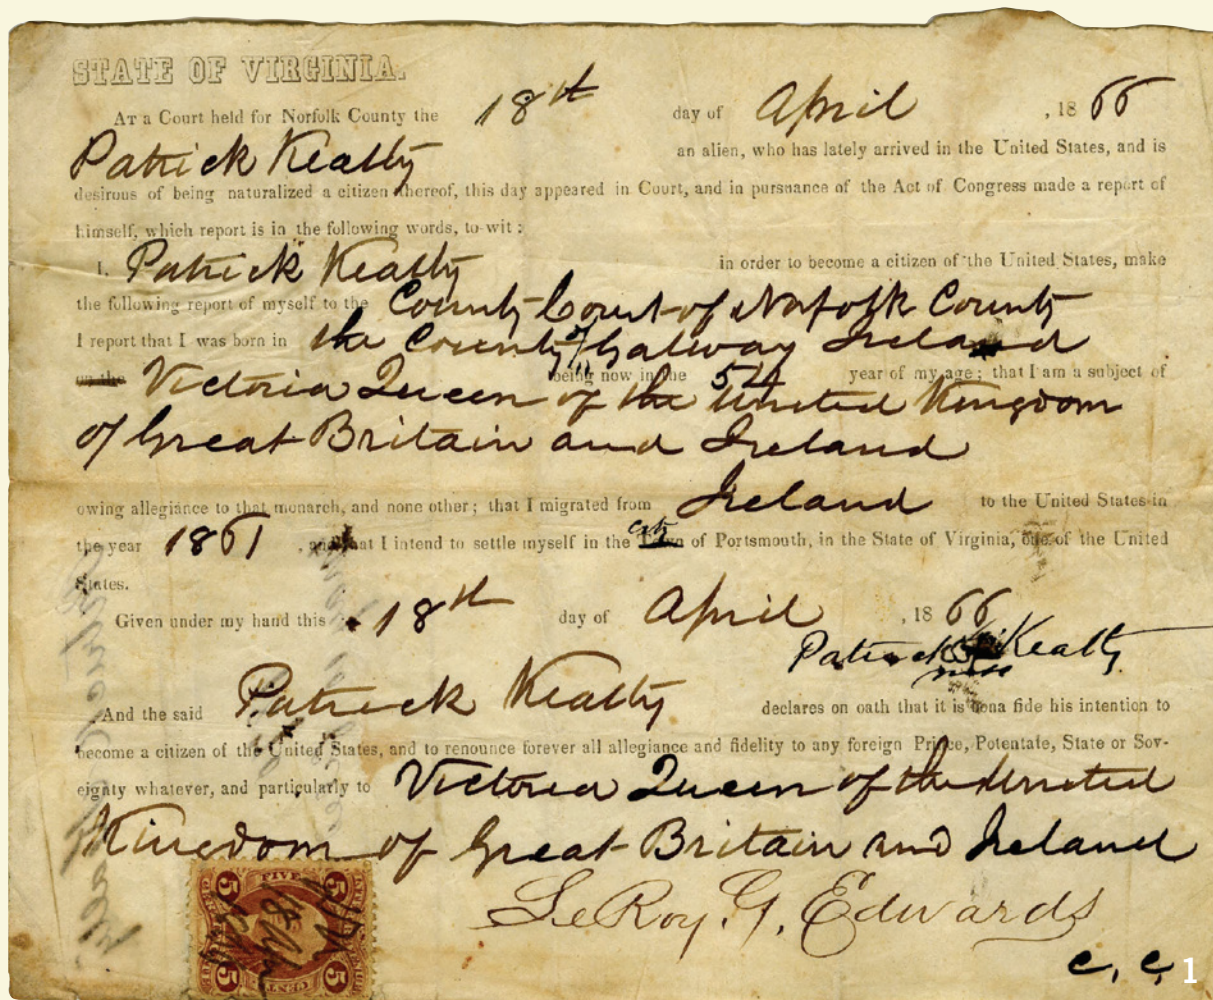 STATE OF VIRGINIA.
AT a Court held for Norfolk County the 18th day of April , 1866
Patrick Kealty an alien, who has lately arrived in the United States, and is
desirous of being naturalized a citizen thereof, this day appeared in Court, and in pursuance of the Act of Congress made a report of
himself, which report is in the following words, to-wit:
I. Patrick Kealty in order to become a citizen of the United States, make
the following report of myself to the County Court of Norfolk County
I report that I was born in the County of Galway Ireland
on the being now in the year of my age; that I am a subject of
Victoria Queen of the United Kingdom
of Great Britain and Ireland
owing allegiance to that monarch, and none other; that I migrated from Ireland to the United States in
the year 1861 , and that I intend to settle myself in the city Town of Portsmouth, in the State of Virginia, one of the United
States.
Given under my hand this 18th day of April , 1866
Patrick Kealty
And the said Patrick Kealty declares on oath that it is bona fide his intention to
become a citizen of the United States, and to renounce forever all allegiance and fidelity to any foreign Prince, Potentate, State or Sov-
eignty whatever, and particularly to Victoria Queen of the United
Kingdom of Great Britain and Ireland
LeRoy. G. Edwards
c. c.
1
5 FIVE 5
5 CENTS 5